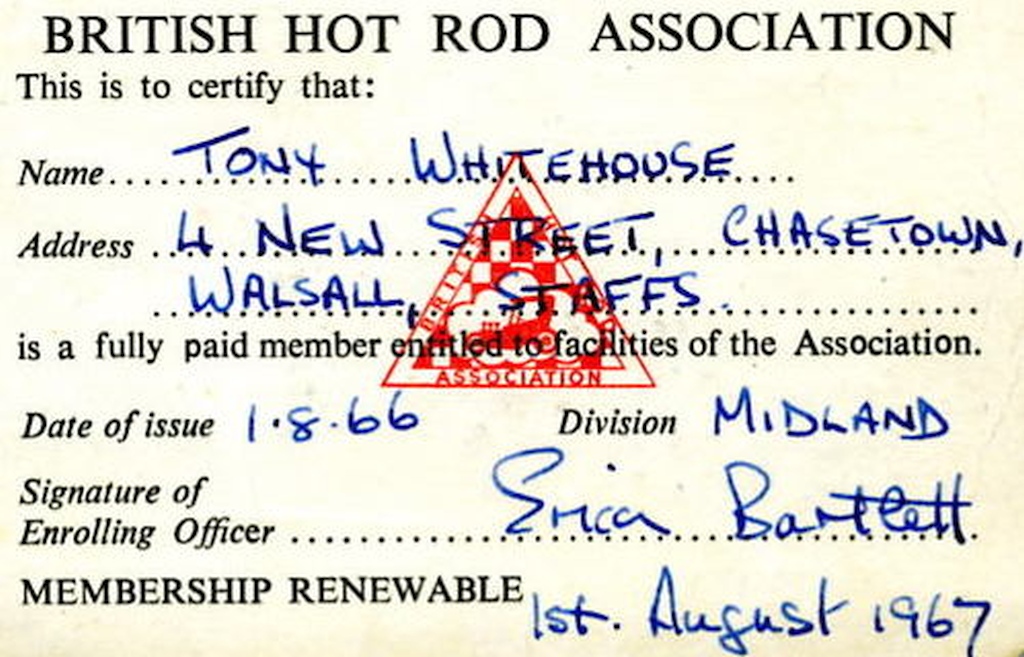 BRITISH HOT ROD ASSOCIATION
This is to certify that:
Name TONY WHITEHOUSE
Address 4 NEW STREET, CHASETOWN,
WALSALL, STAFFS.
is a fully paid member entitled to facilities of the Association.
BRITISH
ASSOCIATION
Date of issue 1.8.66 Division MIDLAND
Signature of
Enrolling Officer Erica Bartlett
MEMBERSHIP RENEWABLE 1st. August 1967